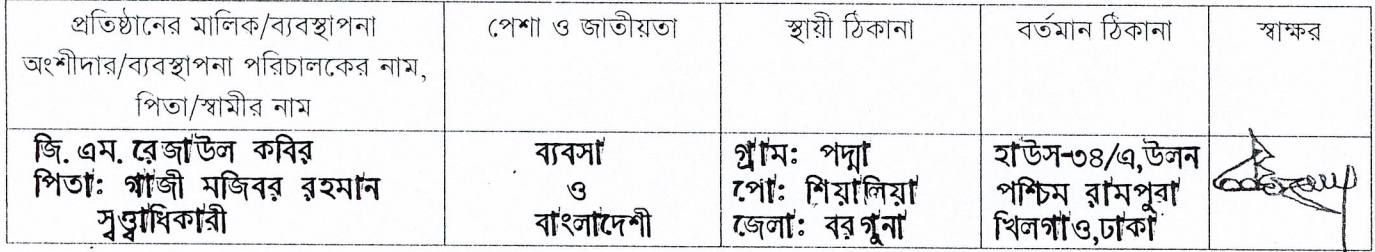 প্রতিষ্ঠানের মালিক/ব্যবস্থাপনা
অংশীদার/ব্যবস্থাপনা পরিচালকের নাম,
পিতা/স্বামীর নাম
পেশা ও জাতীয়তা
স্থায়ী ঠিকানা
বর্তমান ঠিকানা
স্বাক্ষর
জি. এম. রেজাউল কবির
পিতা: গাজী মজিবর রহমান
সুত্ত্বাধিকারী
ব্যবসা
ও
বাংলাদেশী
গ্রাম: পদ্মা
পো: শিয়ালিয়া
জেলা: বরগুনা
হাউস-৩৪/এ,উলন
পশ্চিম রামপুরা
খিলগাও,ঢাকা